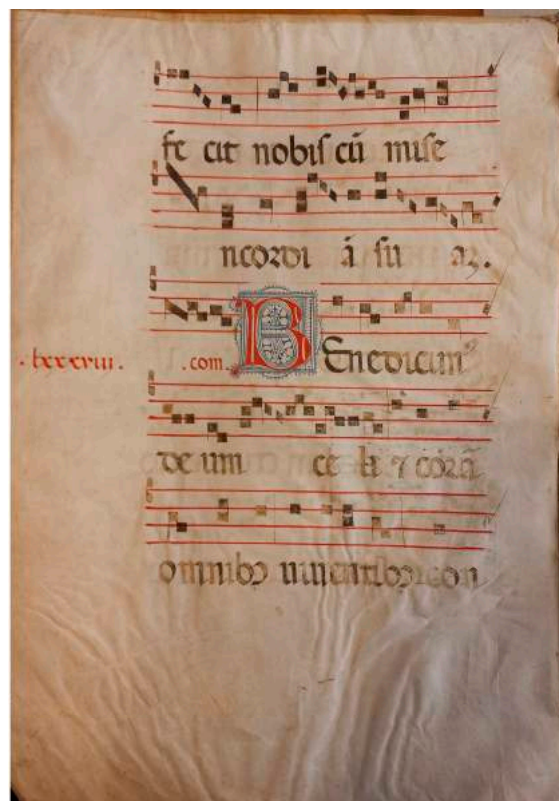 fe cit nobis cũ mise
ricordi ã su aꝫ.
.lxxxviii. .com. BEnedicimꝰ
de um ce li ⁊ corã
omnibꝫ uiuentibꝫ con